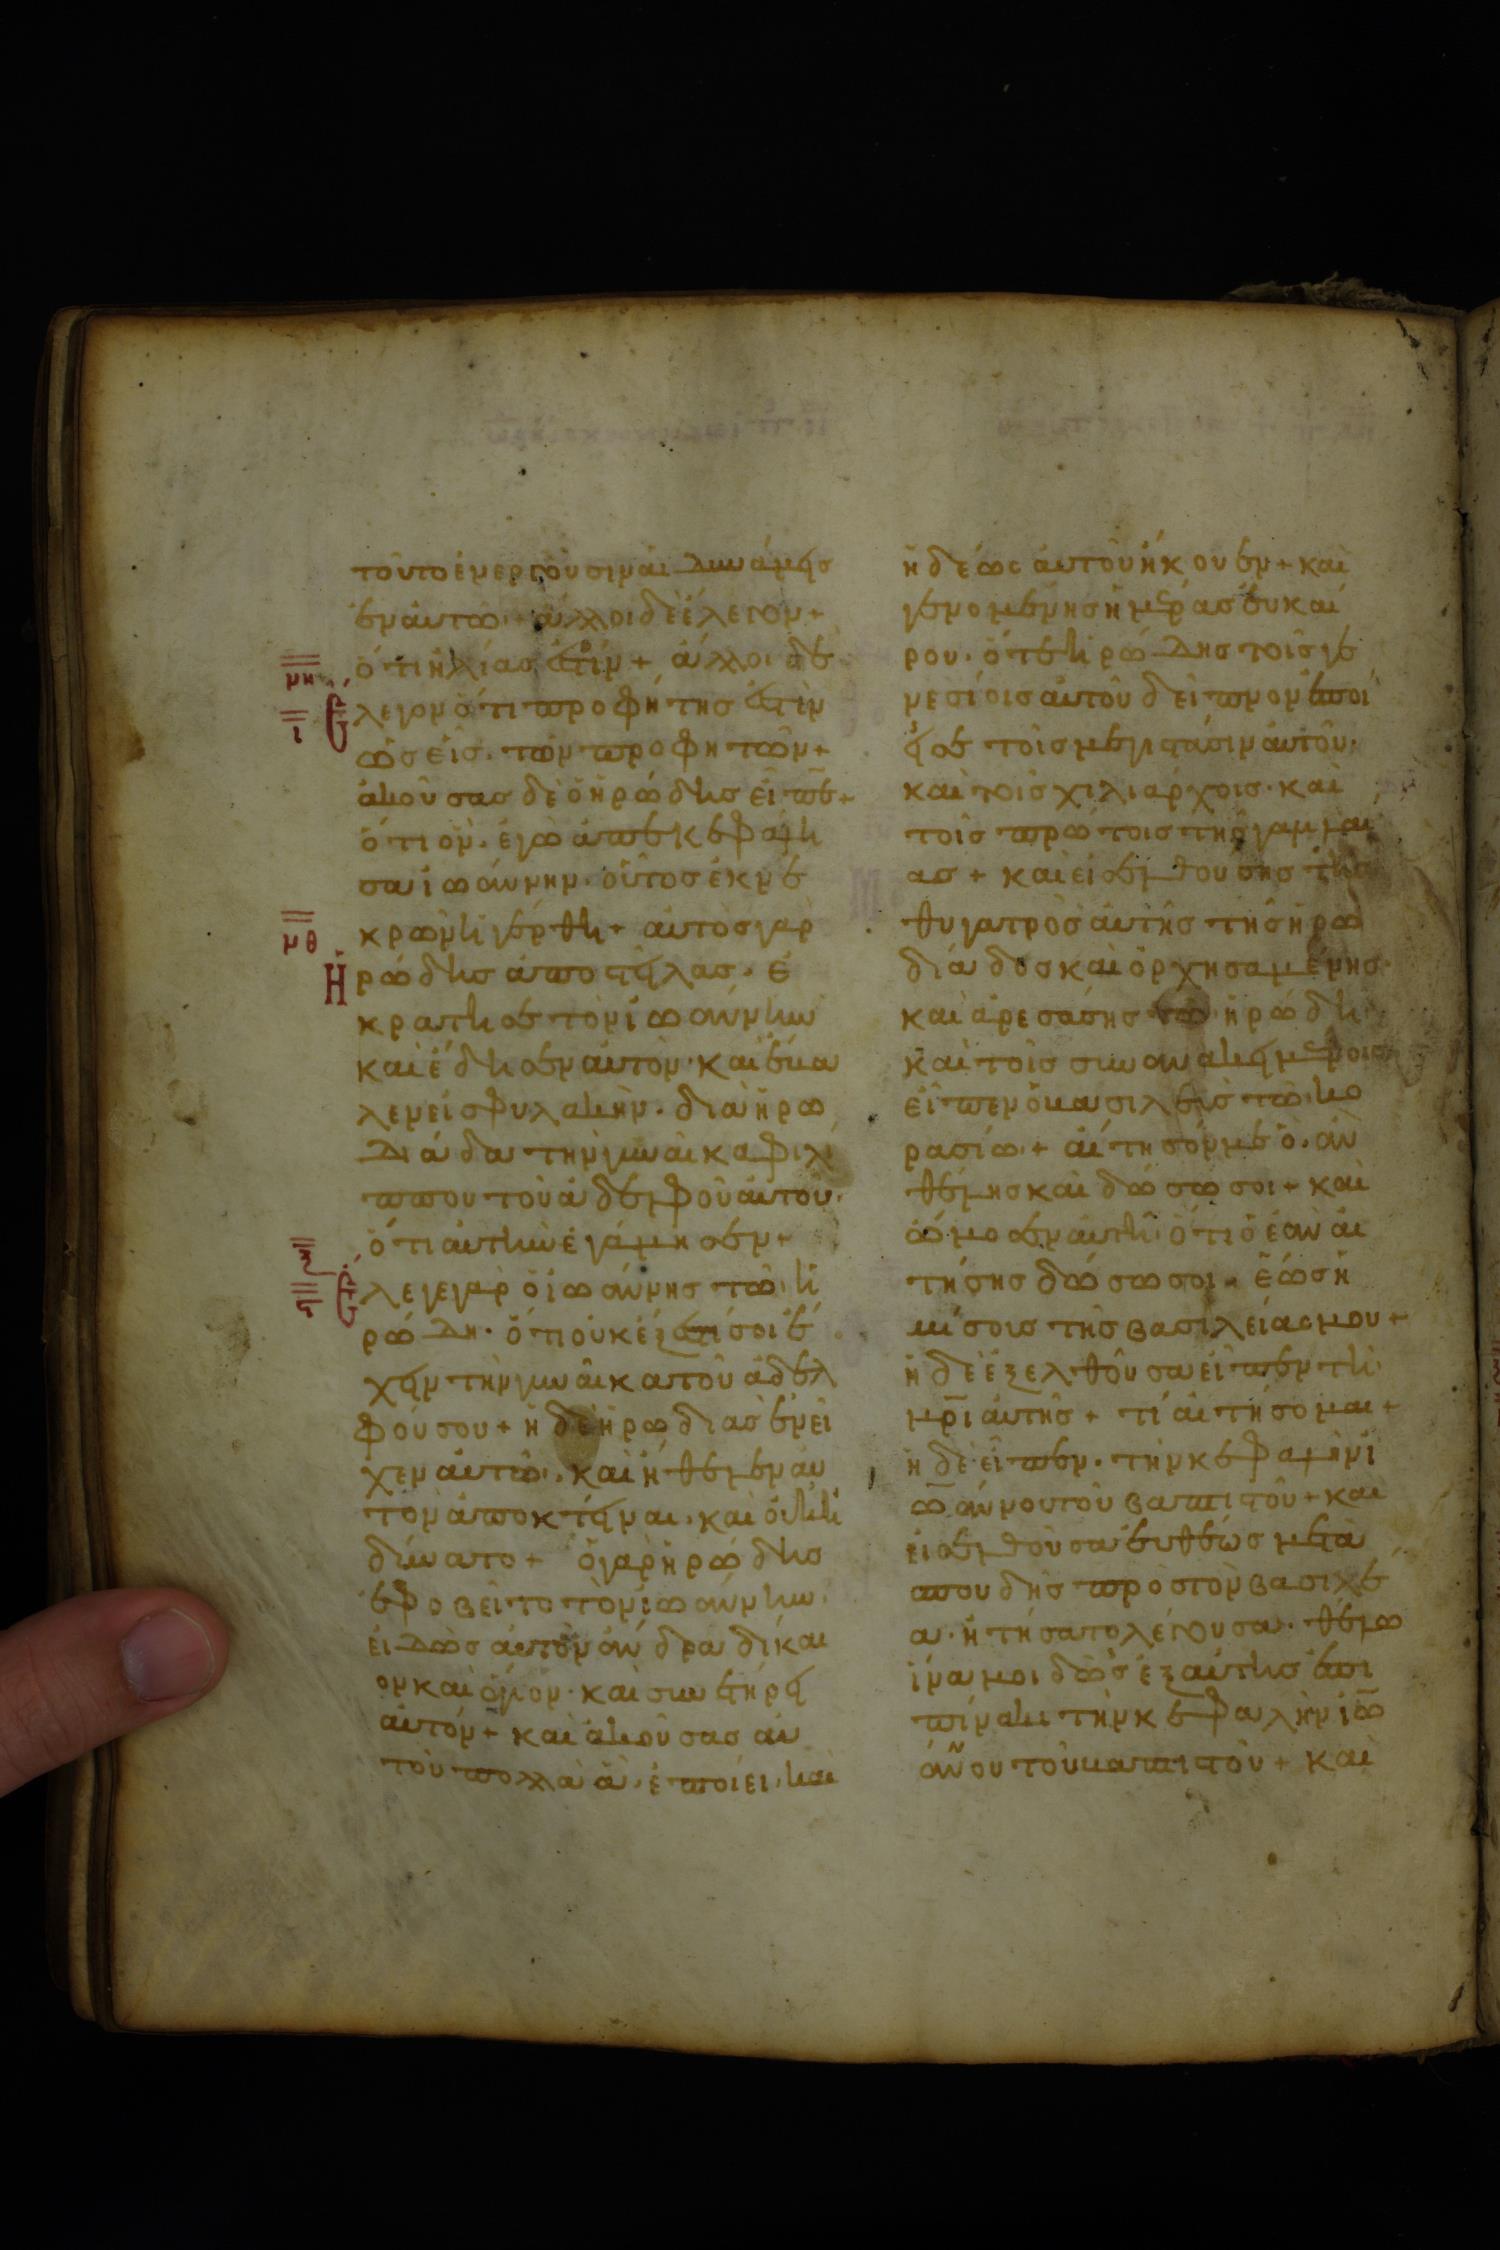 τοῦτο ἐνεργοῦσιν αἱ δυνάμεις
ἐν αὐτῶ + ἄλλοι δὲ ἔλεγον +
ὅτι ἠλίας ἐστίν + ἄλλοι δὲ
μη
ἔλεγον ὅτι προφήτης ἐστὶν
ι
ὡς εἷς τῶν προφητῶν +
ἀκούσας δὲ ὁ ἡρώδης εἶπε +
ὅτι ὃν ἐγὼ ἀπεκεφάλη
σα ἰωάννην οὗτος ἐκ νε
μθ
κρῶν ἠγέρθη + αὐτὸς γὰρ
Ἡρώδης ἀποστείλας ἐ
κράτησε τὸν ἰωάννην
καὶ ἔδησεν αὐτὸν καὶ ἔβα
λεν εἰς φυλακήν διὰ ἡρω
διάδα τὴν γυναῖκα φιλί
ππου τοῦ ἀδελφοῦ αὐτοῦ
ὅτι αὐτὴν ἐγάμησεν +
ξ
ἔλεγε γὰρ ὁ ἰωάννης τῶ ἡ
ς
ρώδη ὅτι οὐκ ἔξεστί σοι ἔ
χειν τὴν γυναῖκα τοῦ ἀδελ
φοῦ σου + ἡ δὲ ἡρωδιὰς ἐνεῖ
χεν αὐτῶ καὶ ἤθελεν αὐ
τὸν ἀποκτεῖναι καὶ οὐκ ἠ
δύνατο + ὁ γὰρ ἡρώδης
ἐφοβεῖτο τὸν ἰωάννην
εἰδὼς αὐτὸν ἄνδρα δίκαι
ον καὶ ἅγιον καὶ συνετήρει
αὐτόν + καὶ ἀκούσας αὐ
τοῦ πολλὰ ἃ ἐποίει καὶ
ἡδέως αὐτοῦ ἤκουεν + καὶ
γενομένης ἡμέρας εὐκαί
ρου ὅτε ἡρώδης τοῖς γε
νεσίοις αὐτοῦ δεῖπνον ἐποί
ησε τοῖς μεγιστᾶσιν αὐτοῦ
καὶ τοῖς χιλιάρχοις καὶ
τοῖς πρώτοις τῆς γαλιλαί
ας + καὶ εἰσελθούσης τῆς
θυγατρὸς αὐτῆς τῆς ἡρω
διάδος καὶ ὀρχησαμένης
καὶ ἀρεσάσης τῶ ἡρώδη
καὶ τοῖς συνανακειμένοις
εἶπεν ὁ βασιλεὺς τῶ κο
ρασίω + αἴτησόν με ὃ ἂν
θέλης καὶ δώσω σοι + καὶ
ὤμοσεν αὐτῆ ὅτι ὃ ἐὰν αἰ
τήσης δώσω σοι ἕως ἡ
μίσους τῆς βασιλείας μου +
ἡ δὲ ἐξελθοῦσα εἶπεν τῆ
μρῖ αὐτῆς + τί αἰτήσομαι +
ἡ δὲ εἶπεν τὴν κεφαλὴν ἰ
ωάννου τοῦ βαπτιστοῦ + καὶ
εἰσελθοῦσα εὐθέως μετὰ
σπουδῆς πρὸς τὸν βασιλέ
α ἠτήσατο λέγουσα θέλω
ἵνα μοι δῶς ἐξ αὐτῆς ἐπὶ
πίνακι τὴν κεφαλὴν ἰω
άννου τοῦ βαπτιστοῦ + καὶ